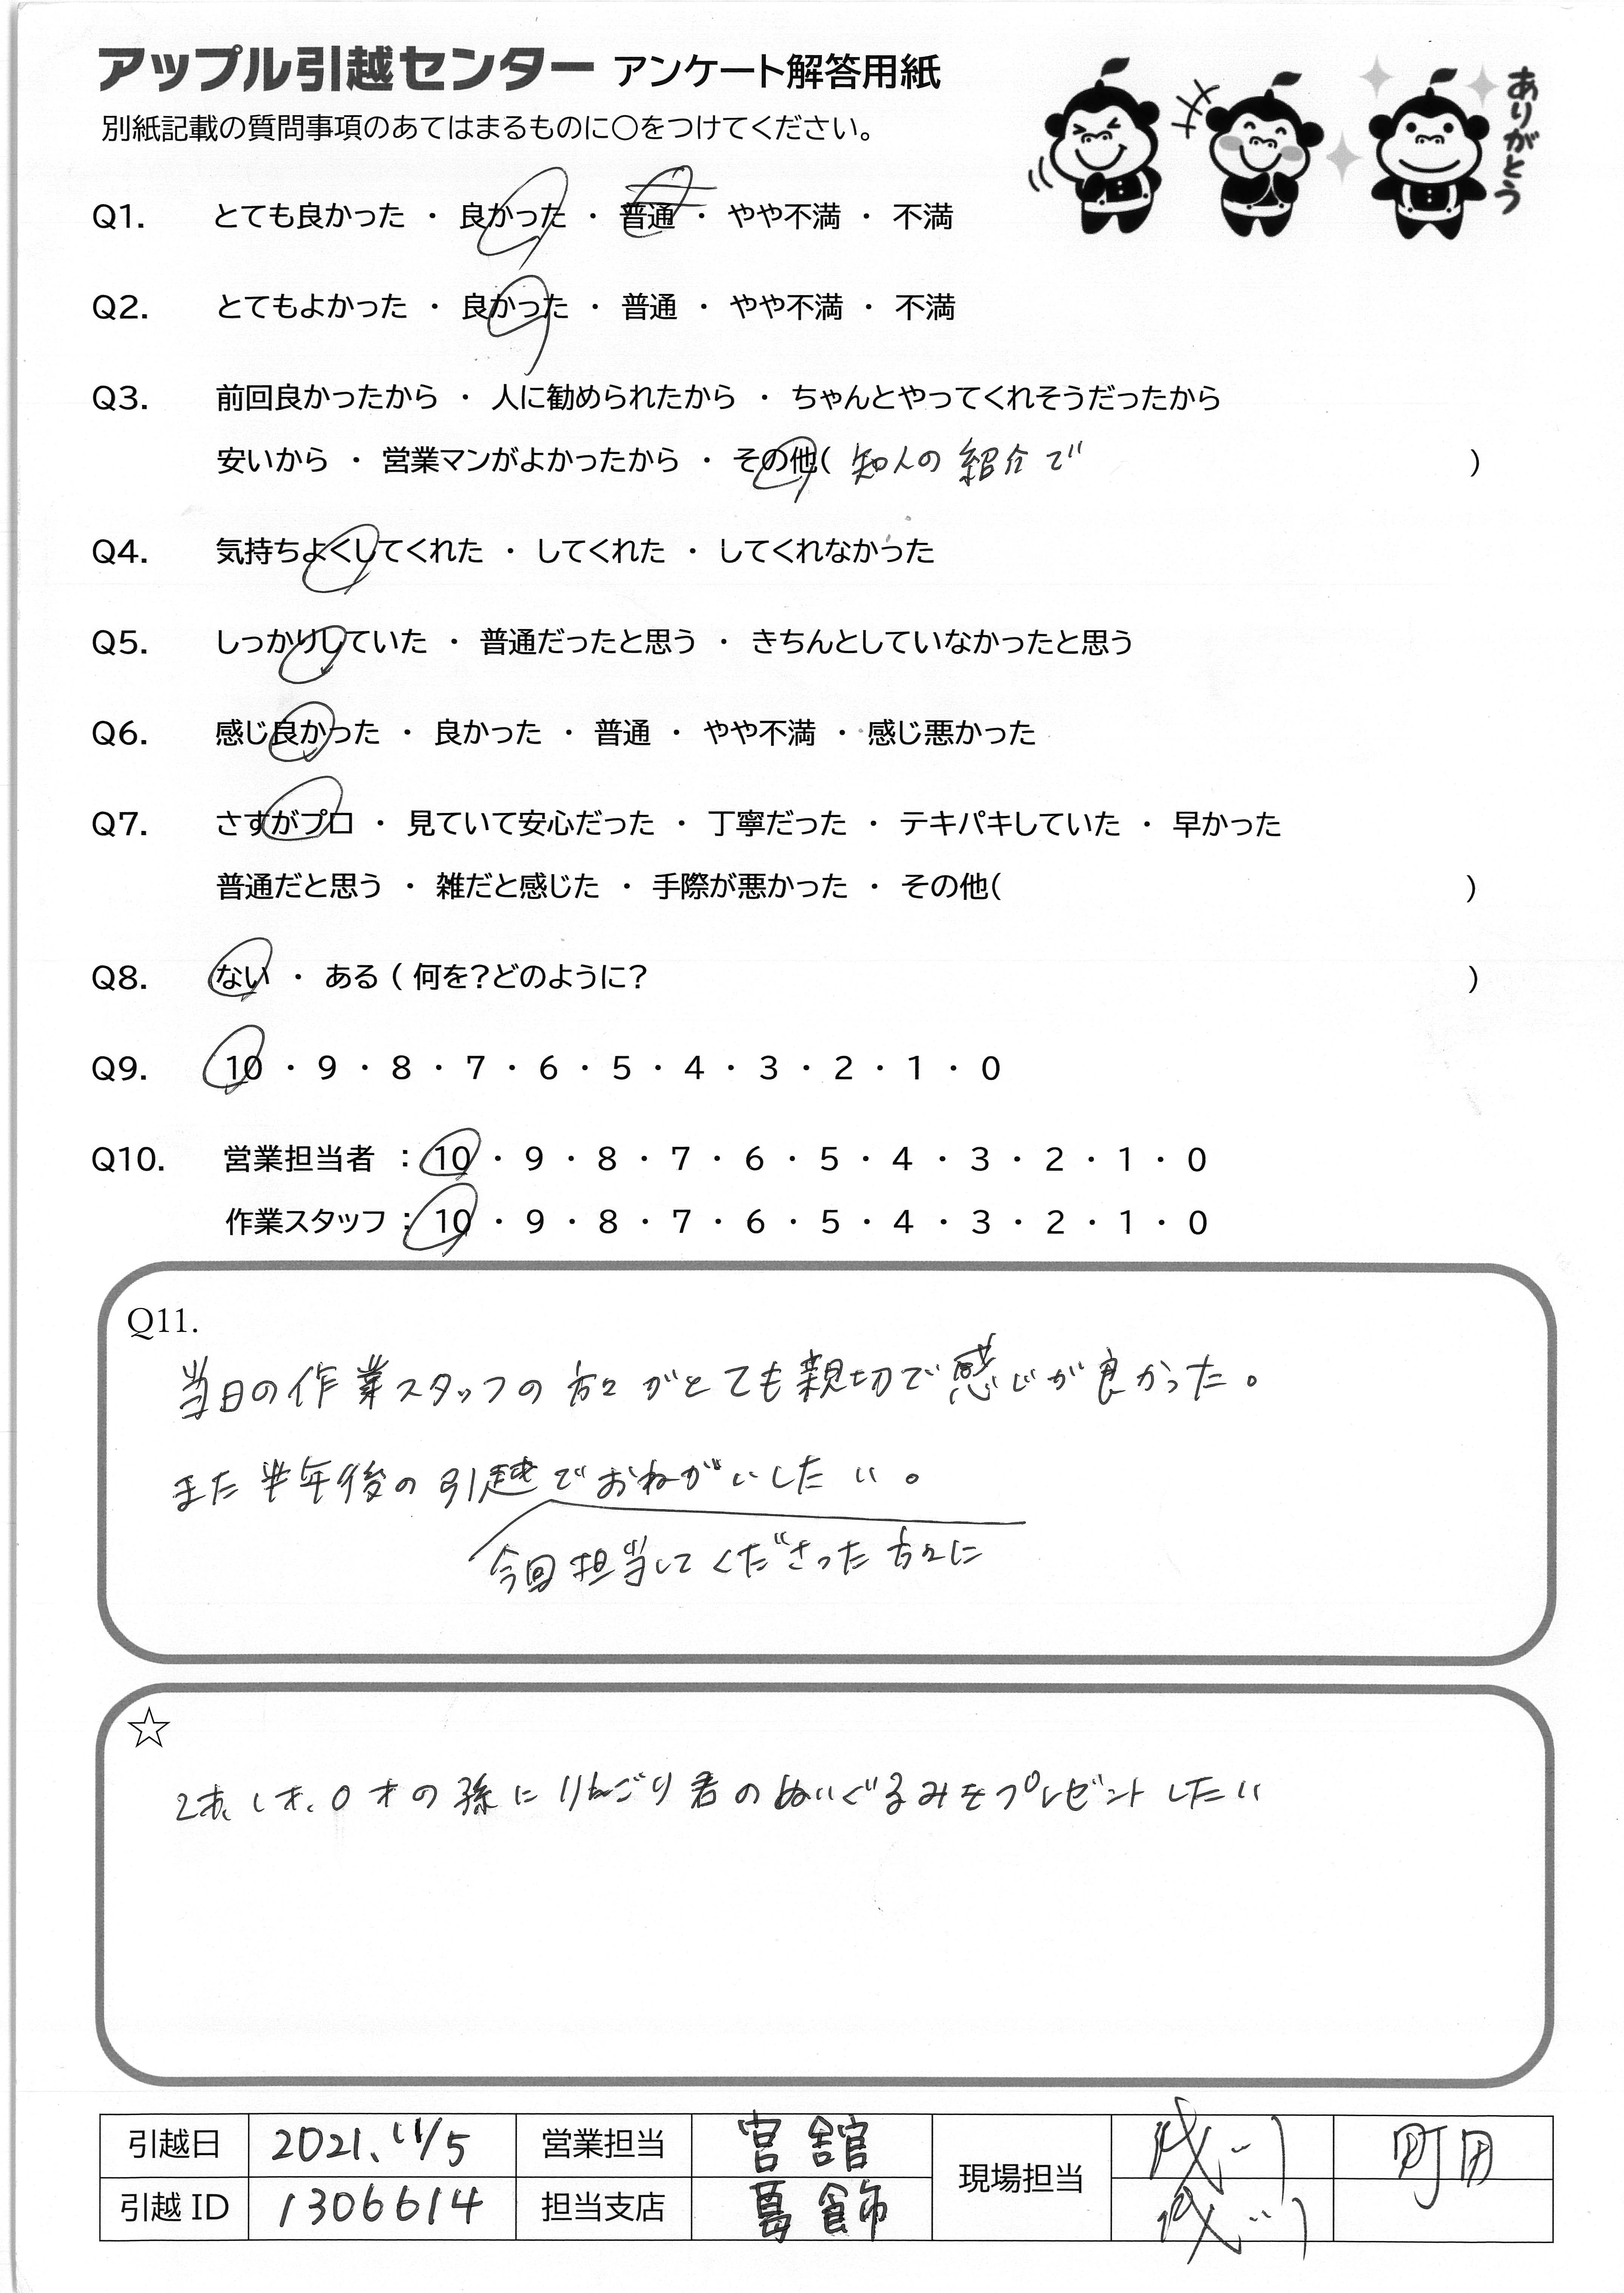 アップル引越センター アンケート解答用紙
ありがとう
別紙記載の質問事項のあてはまるものに○をつけてください。
Q1. とても良かった ・ 良かった ・ 普通 ・ やや不満 ・ 不満
Q2. とてもよかった ・ 良かった ・ 普通 ・ やや不満 ・ 不満
Q3. 前回良かったから ・ 人に勧められたから ・ ちゃんとやってくれそうだったから
安いから ・ 営業マンがよかったから ・ その他( 知人の紹介で )
Q4. 気持ちよくしてくれた ・ してくれた ・ してくれなかった
Q5. しっかりしていた ・ 普通だったと思う ・ きちんとしていなかったと思う
Q6. 感じ良かった ・ 良かった ・ 普通 ・ やや不満 ・ 感じ悪かった
Q7. さすがプロ ・ 見ていて安心だった ・ 丁寧だった ・ テキパキしていた ・ 早かった
普通だと思う ・ 雑だと感じた ・ 手際が悪かった ・ その他( )
Q8. ない ・ ある ( 何を?どのように? )
Q9. 10 ・ 9 ・ 8 ・ 7 ・ 6 ・ 5 ・ 4 ・ 3 ・ 2 ・ 1 ・ 0
Q10. 営業担当者 : 10 ・ 9 ・ 8 ・ 7 ・ 6 ・ 5 ・ 4 ・ 3 ・ 2 ・ 1 ・ 0
作業スタッフ : 10 ・ 9 ・ 8 ・ 7 ・ 6 ・ 5 ・ 4 ・ 3 ・ 2 ・ 1 ・ 0
Q11.
当日の作業スタッフの方々がとても親切で感じが良かった。
また半年後の引越でおねがいしたい。
今回担当してくださった方々に
☆
2才、1才、0才の孫にりんごり君のぬいぐるみをプレゼントしたい
引越日 2021、11/5 営業担当 宮舘 現場担当 町田
引越 ID 1306614 担当支店 葛飾